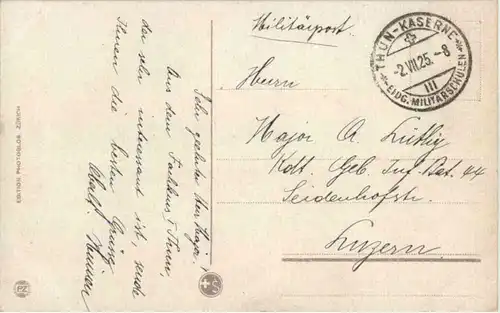 Militärpost
THUN-KASERNE
-2.VII.25.-8
III
EIDG. MILITÄRSCHULEN
Herrn
Major A. Lüthy
Kdt. Geb. Inf. Bat. 44
Seidenhofstr.
Luzern
Sehr geehrter Herr Major!
Aus dem Fachkurs I Thun,
der sehr interessant ist, sende
Ihnen die besten
Grüsse
EDITION PHOTOGLOB, ZÜRICH
PZ
S